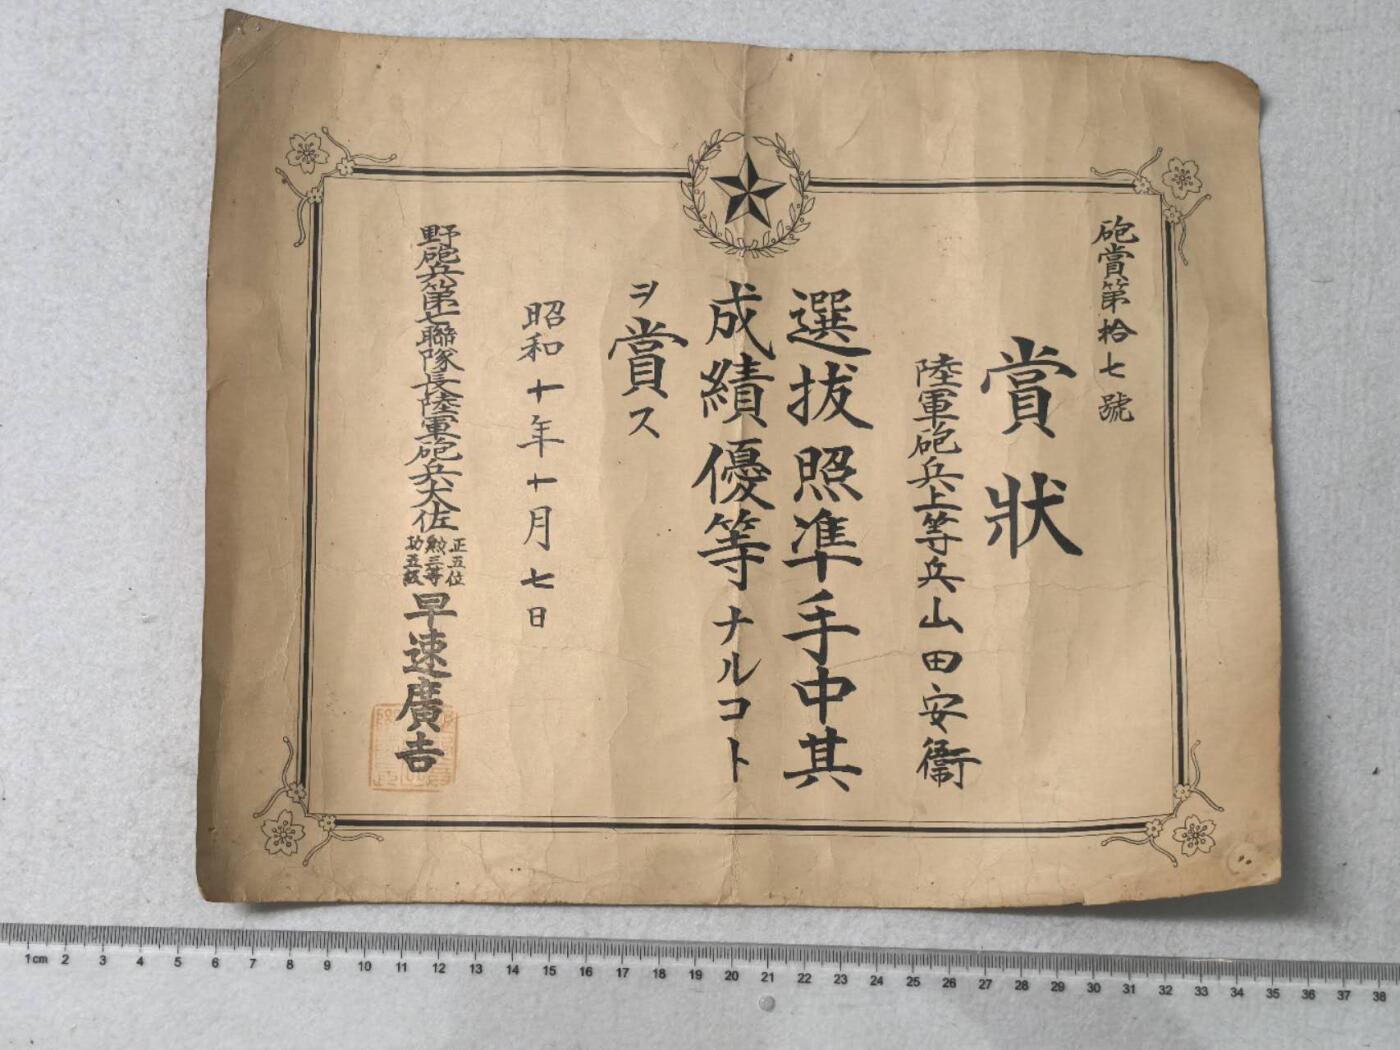 砲賞第拾七號
賞狀
陸軍砲兵上等兵山田安衞
選拔照準手中其
成績優等ナルコト
ヲ賞ス
昭和十年十月七日
野砲兵第七聯隊長陸軍砲兵大佐
正五位
勲三等
功五級
早速廣吉
1cm 2 3 4 5 6 7 8 9 10 11 12 13 14 15 16 17 18 19 20 21 22 23 24 25 26 27 28 29 30 31 32 33 34 35 36 37 38